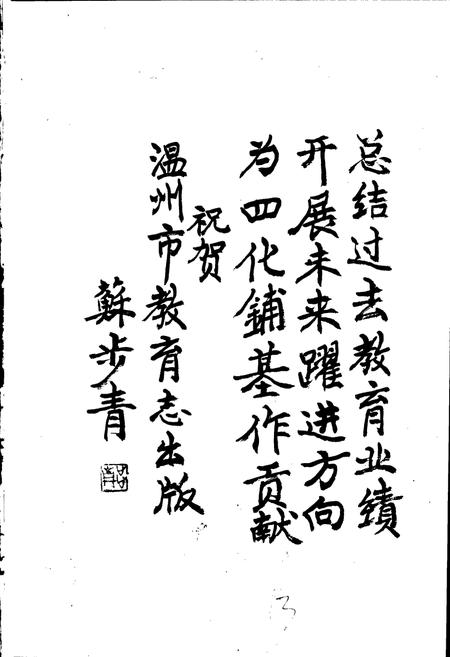 总结过去教育业绩
开展未来躍进方向
为四化鋪基作贡献
祝贺
温州市教育志出版
蘇步青